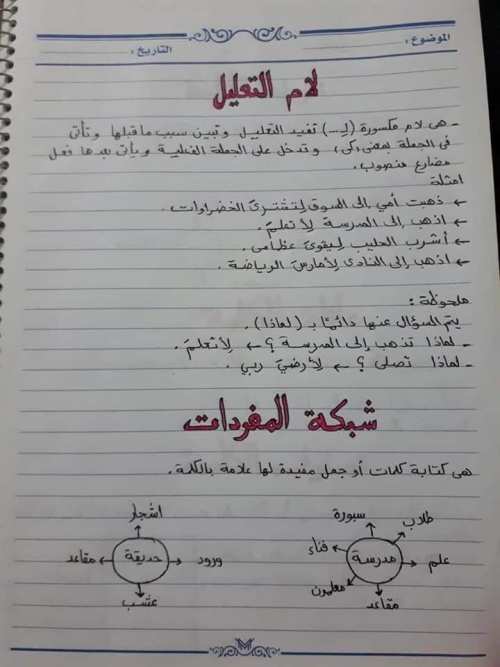 الموضوع :
التاريخ :
لام التعليل
- هى لام مكسورة (لِـ) تفيد التعليل وتبين سبب ما قبلها وتأتى
فى الجملة بمعنى (كى) وتدخل على الجملة الفعلية ويأتى بعدها فعل
مضارع منصوب.
امثلة
← ذهبت أمي إلى السوق لِتشترىَ الخضراوات.
← اذهب إلى المدرسة لِأتعلمَ.
← أشرب الحليب لِيقوىَ عظامى.
← اذهب إلى النادى لِأمارسَ الرياضة.
ملحوظة :
يتم السؤال عنها دائمًا بـ (لماذا).
- لماذا تذهب إلى المدرسة ؟ ← لِأتعلمَ.
- لماذا تصلى ؟ ← لِأرضيَ ربي.
شبكة المفردات
هى كتابة كلمات أو جمل مفيدة لها علامة بالكلمة.
سبورة
طلاب
فناء
مدرسة
علم
معلمون
مقاعد
اشجار
ورود
حديقة
مقاعد
عشب